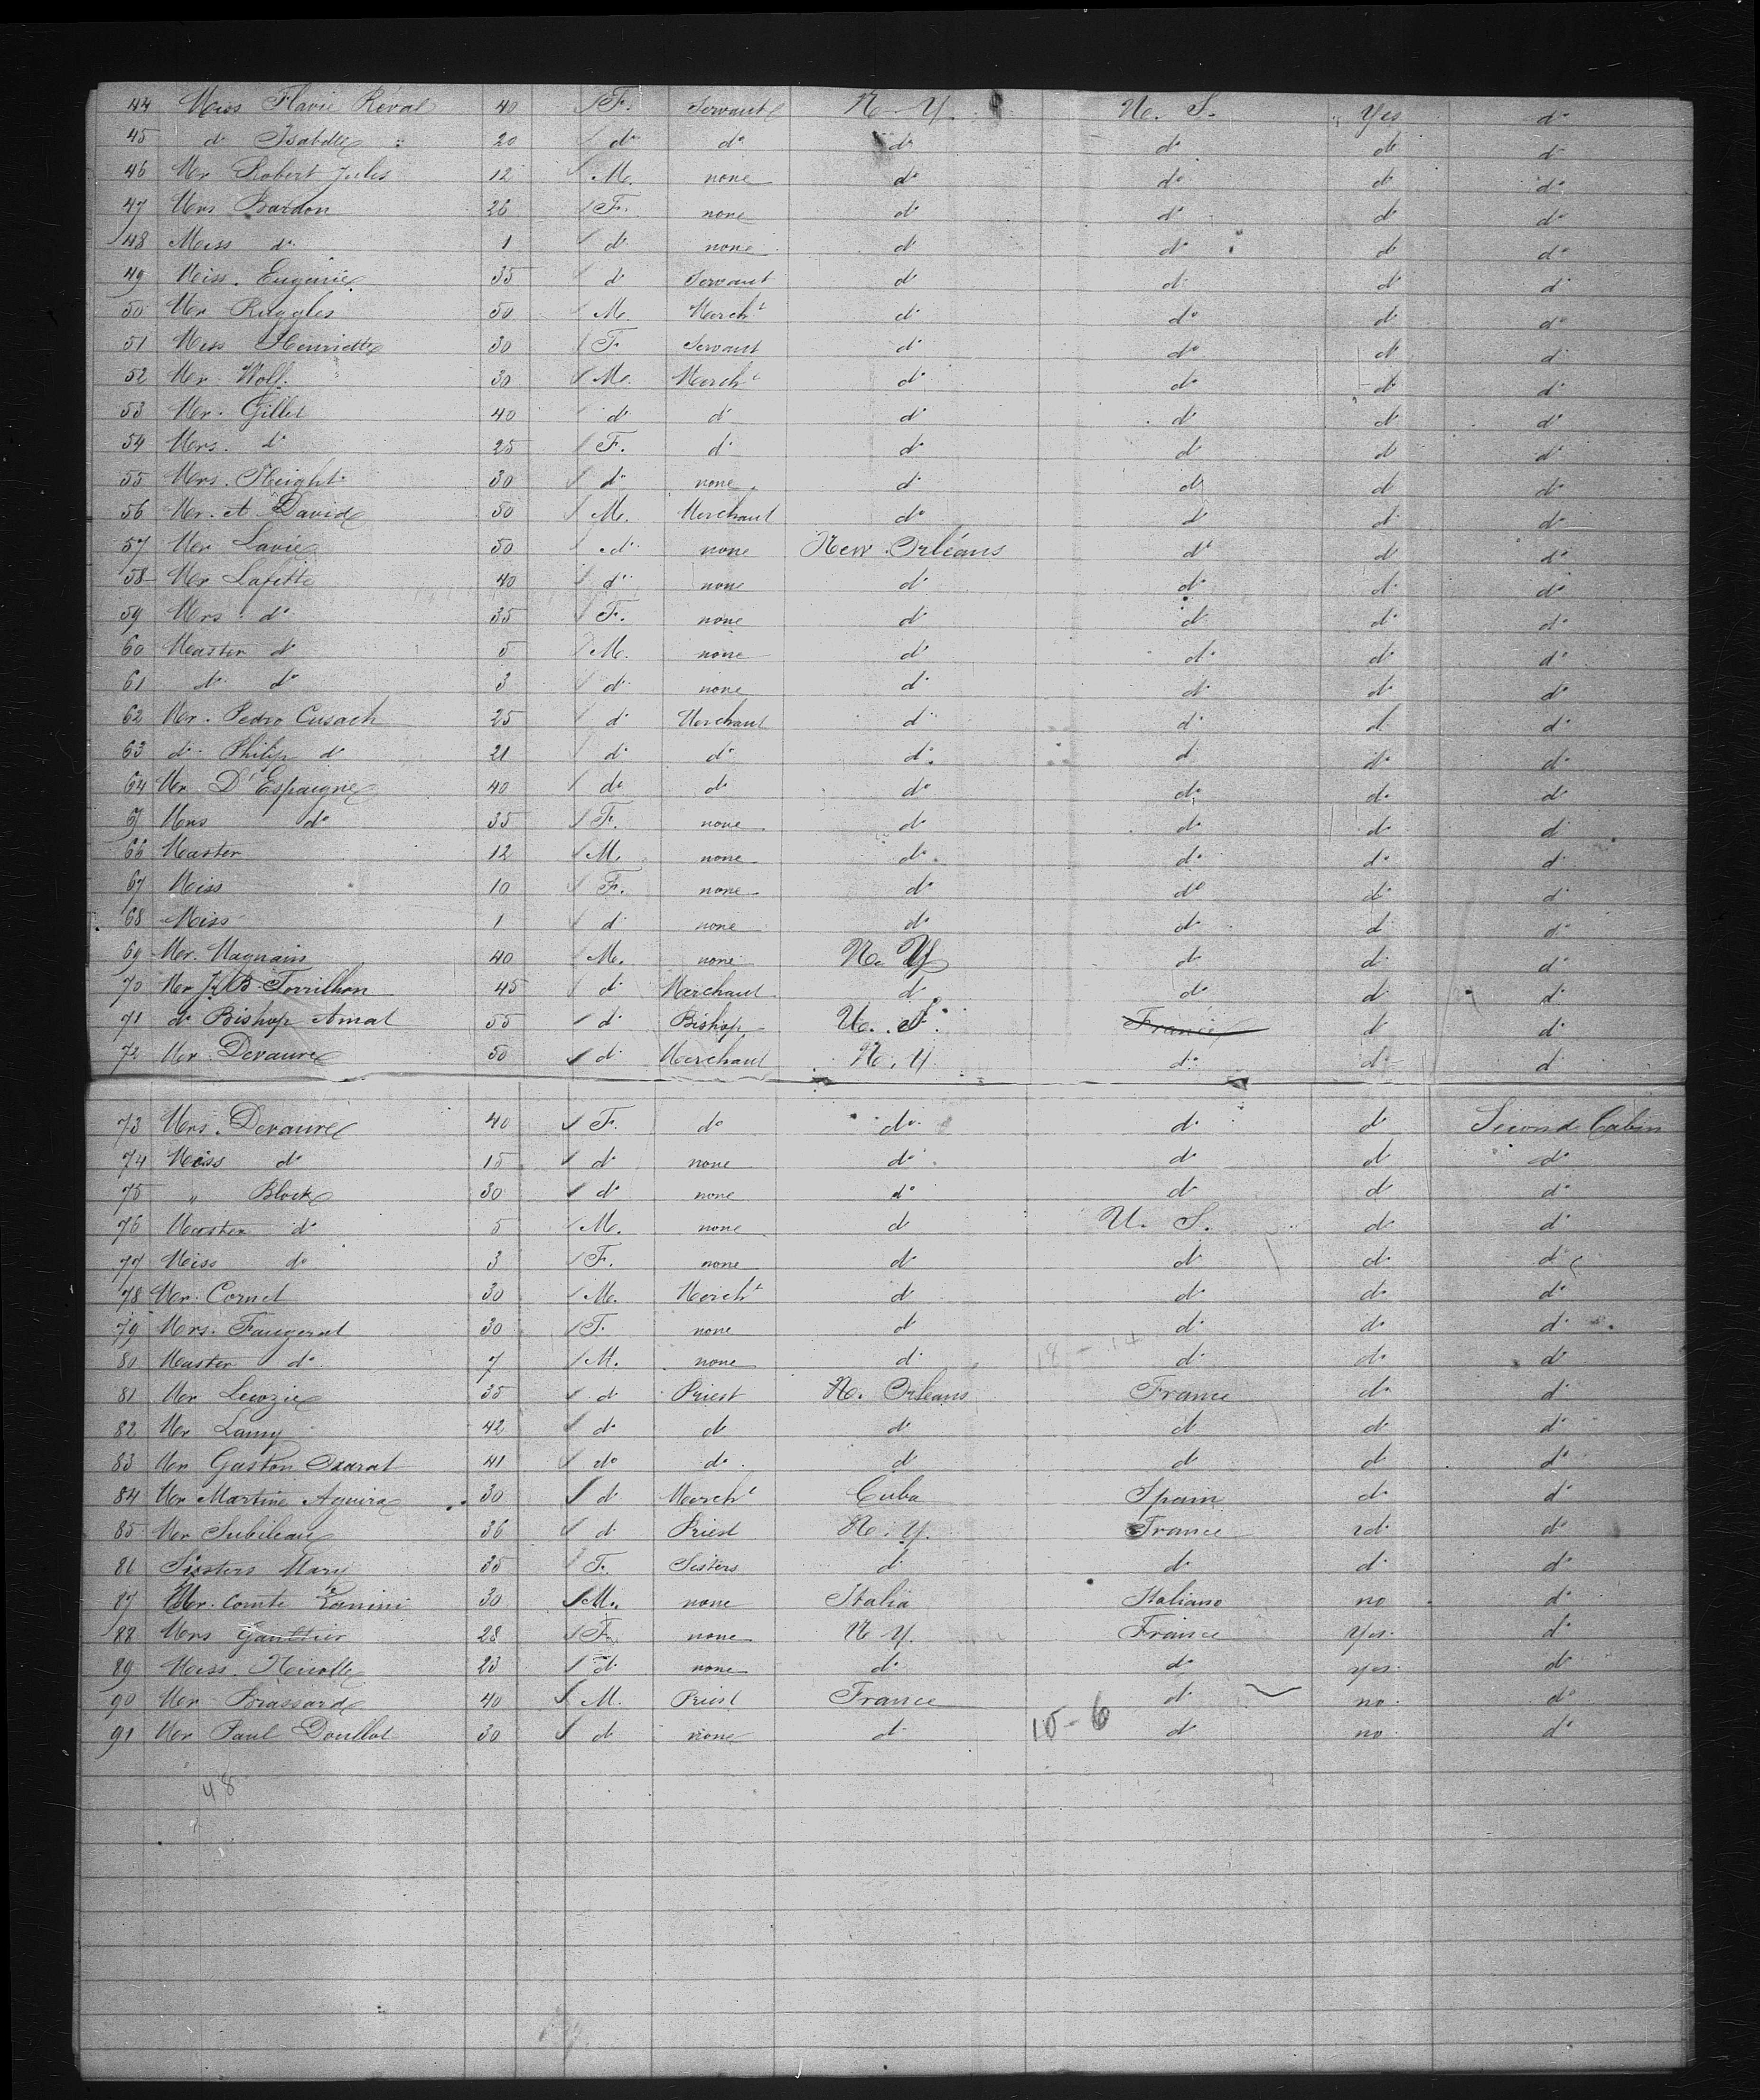 44 Miss Flavie Réval 40 F. Servant N. Y. U. S. Yes do
45 do Isabelle " 20 do do do do do do
46 Mr Robert Jules 12 M. none do do do do
47 Mrs Bardon 26 F. none do do do do
48 Miss do 1 do none do do do do
49 Miss. Eugénie 35 do Servant do do do do
50 Mr Ruggles 50 M. Mercht do do do do
51 Miss Henriette 30 F. Servant do do do do
52 Mr. Wolf. 30 M. Mercht do do do do
53 Mr. Gillet 40 do do do do do do
54 Mrs. do 25 F. do do do do do
55 Mrs. Sleight 30 do none do do do do
56 Mr. A David 50 M. Merchant do do do do
57 Mr Lavie 50 do none New Orléans do do do
58 Mr Lafitte 40 do none do do do do
59 Mrs do 35 F. none do do do do
60 Master do 5 M. none do do do do
61 do do 3 do none do do do do
62 Mr. Pedro Cusach 25 do Merchant do do do do
63 do Philip do 21 do do do do do do
64 Mr. D'Espaigne 40 do do do do do do
Mrs do 35 F. none do do do do
66 Master 12 M. none do do do do
67 Miss 10 F. none do do do do
68 Miss 1 do none do do do do
69 Mr. Magnain 40 M. none N. Y do do do
70 Mr J. B. Torrilhon 45 do Merchant do do do do
71 do Bishop Amat 55 do Bishop U. S. France do do
72 Mr. Devaure 50 do Merchant N. Y. do do do
73 Mrs. Devaure 40 F. do do do do Second Cabin
74 Miss do 15 do none do do do do
75 " Block 30 do none do do do do
76 Master do 5 M. none do U. S. do do
77 Miss do 3 F. none do do do do
78 Mr. Cornet 30 M. Mercht do do do do
79 Mrs. Faugerat 30 F. none do do do do
80 Master do 7 M. none do 18 - 14 do do do
81 Mr Lecozie 35 do Priest N. Orleans France do do
82 Mr Lamy 42 do do do do do do
83 Mr Gaston 41 do do do do do do
84 Mr Martine Aguira 30 do Mercht Cuba Spain do do
85 Mr Subileau 36 do Priest N. Y. France do do
86 Sisters Mary 35 F. Sisters do do do do
87 Mr. Comte Zanini 30 M. none Italia Italiano no do
88 Mrs Gaulthier 28 F. none N Y. France Yes do
89 Miss. 23 do none do do yes do
90 Mr Brassard 40 M. Priest France do no do
91 Mr Paul Doullot 30 do none do 15-6 do no do
48